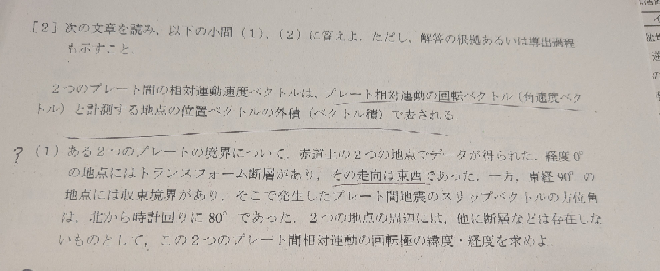 ［2］次の文章を読み、以下の小問（1）、（2）に答えよ。ただし、解答の根拠あるいは導出過程
も示すこと。
2つのプレート間の相対運動速度ベクトルは、プレート相対運動の回転ベクトル（角速度ベク
トル）と計測する地点の位置ベクトルの外積（ベクトル積）で表される。
? （1）ある2つのプレートの境界について、赤道上の2つの地点でデータが得られた。経度0°
の地点にはトランスフォーム断層があり、その走向は東西であった。一方、東経90°の
地点には収束境界があり、そこで発生したプレート間地震のスリップベクトルの方位角
は、北から時計回りに80°であった。2つの地点の周辺には、他に断層などは存在しな
いものとして、この2つのプレート間相対運動の回転極の緯度・経度を求めよ。